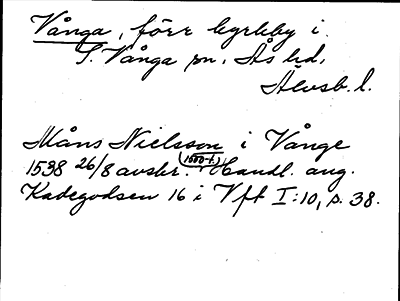 Vånga, förr kyrkby i
S. Vånga sn, Ås hd,
Älvsb. l.
Måns Nielsson i Vånge
1538 26/8 avskr. (1600-t.) Handl. ang.
Kadegodsen 16 i Vft I:10, s. 38.